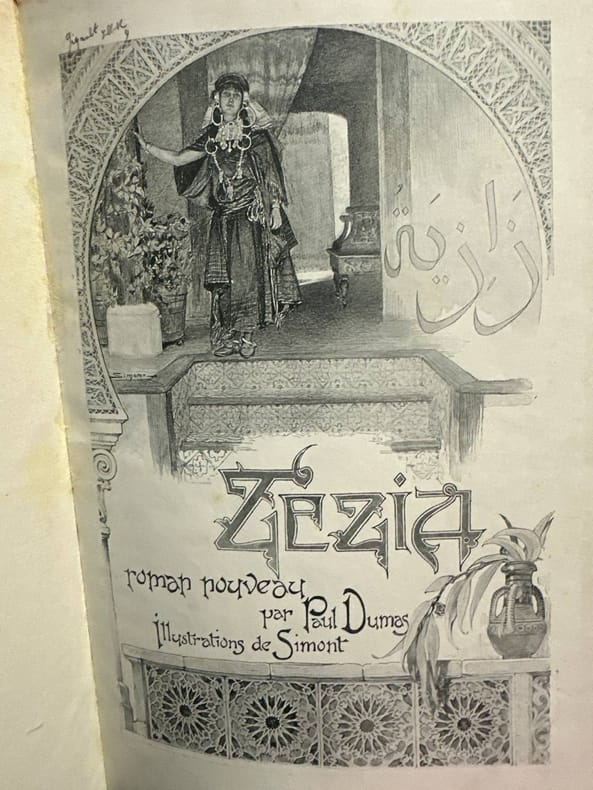 زَازِيَةُ
Simont
Zézia
roman nouveau
par Paul Dumas
illustrations de Simont